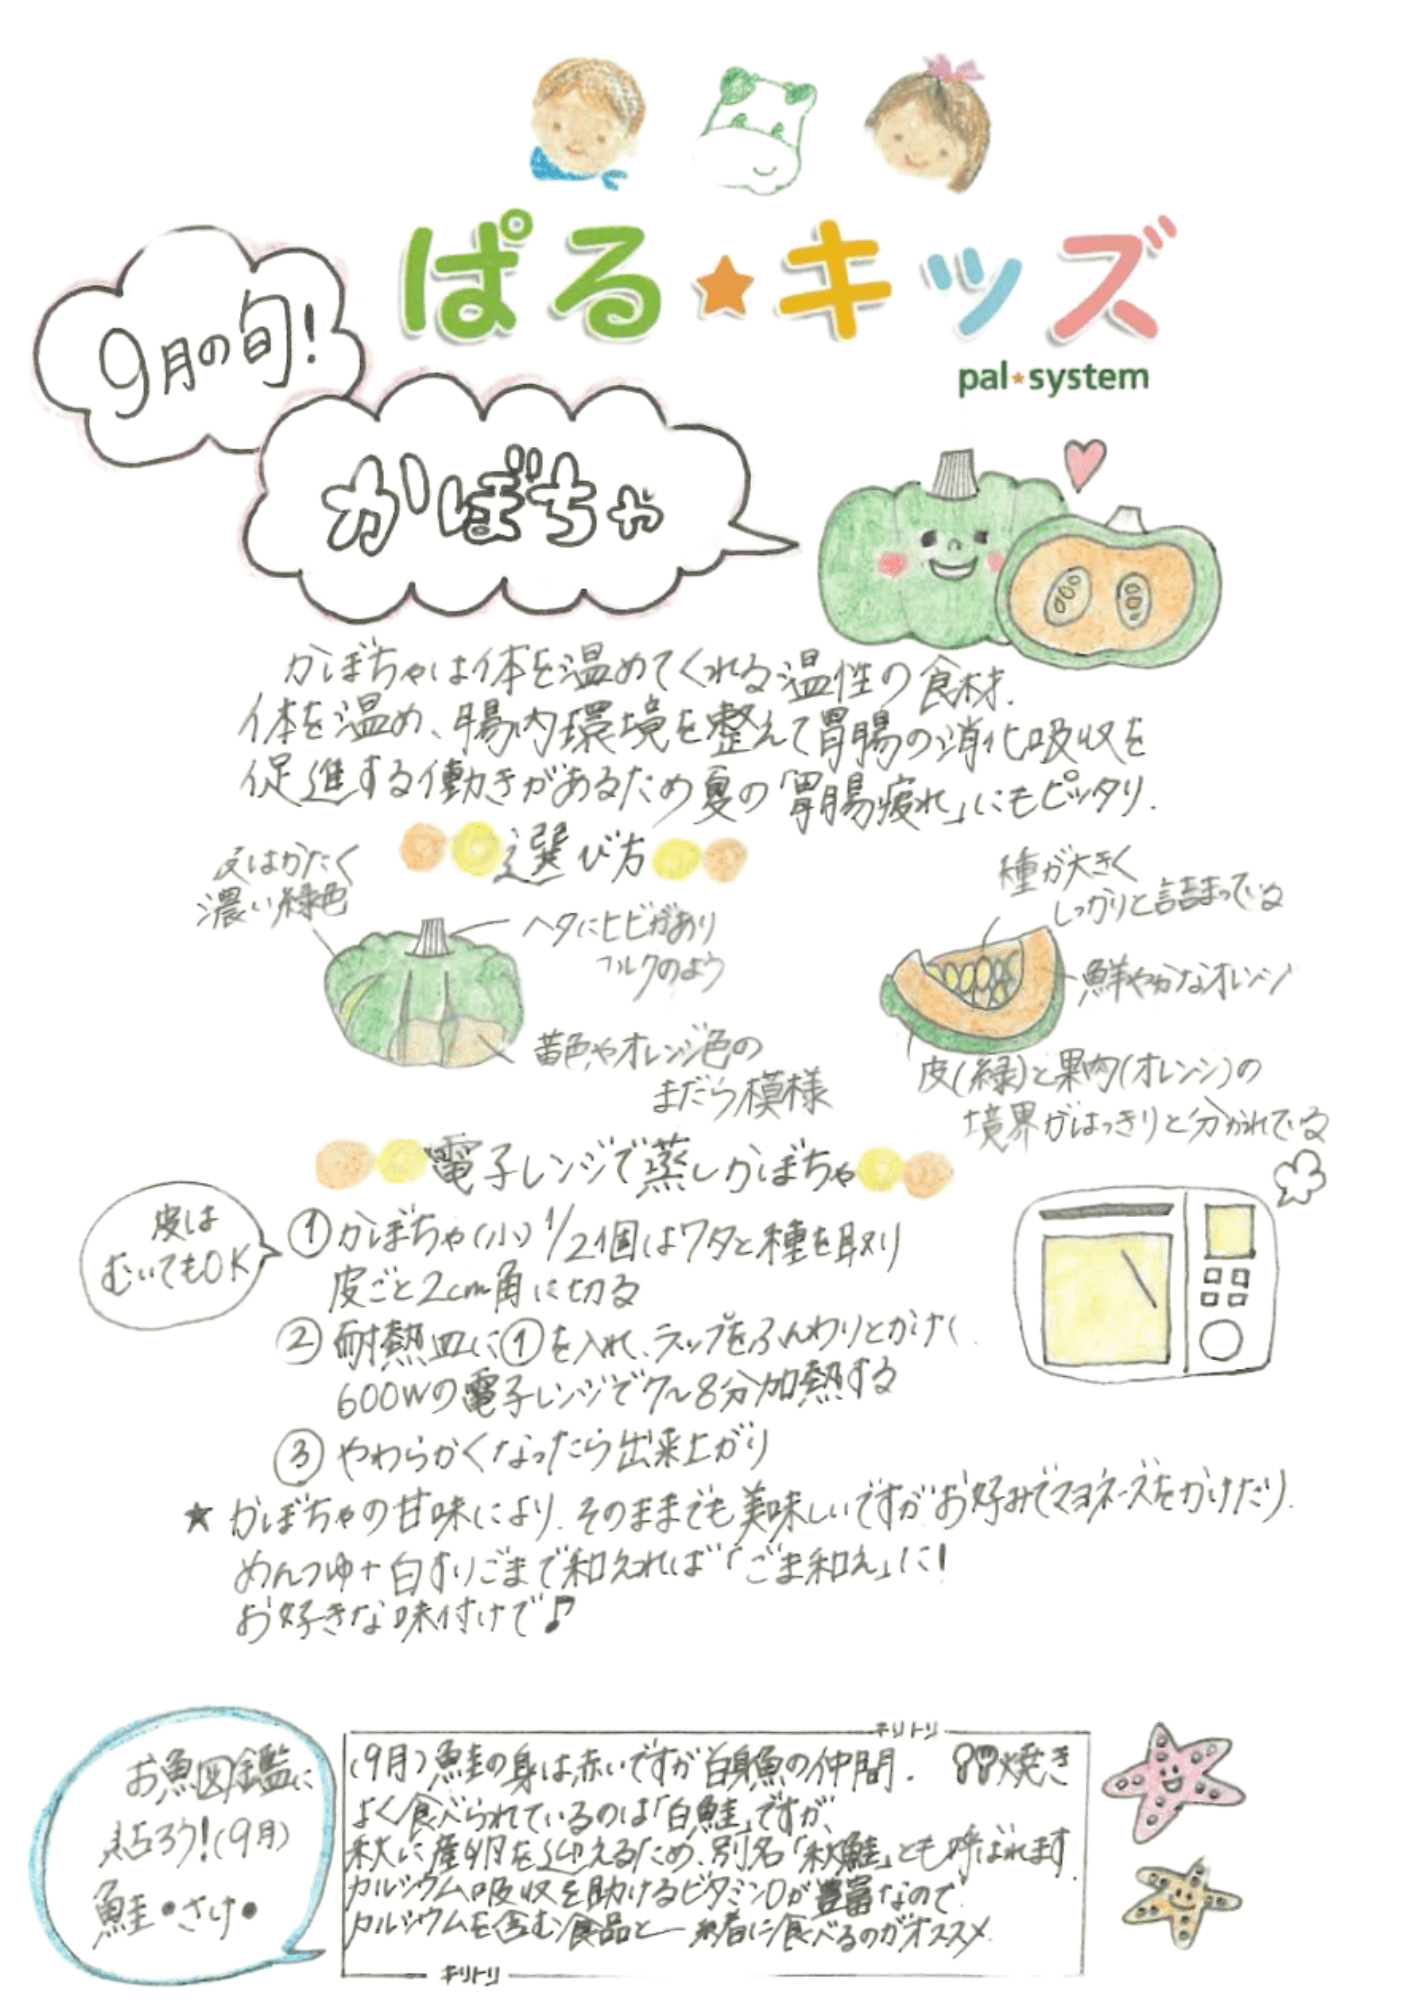 ぱる★キッズ
pal★system
9月の旬!
かぼちゃ
かぼちゃは体を温めてくれる温性の食材.
体を温め、腸内環境を整えて胃腸の消化吸収を
促進する働きがあるため夏の「胃腸疲れ」にもピッタリ.
選び方
皮はかたく
濃い緑色
ヘタにヒビがあり
コルクのよう
黄色やオレンジ色の
まだら模様
種が大きく
しっかりと詰まっている
鮮やかなオレンジ
皮(緑)と果肉(オレンジ)の
境界がはっきりと分かれている
電子レンジで蒸しかぼちゃ
皮は
むいてもOK
①かぼちゃ(小)1/2個はワタと種を取り
皮ごと2cm角に切る
②耐熱皿に①を入れ、ラップをふんわりとかけ
600Wの電子レンジで7〜8分加熱する
③やわらかくなったら出来上がり
★かぼちゃの甘味により、そのままでも美味しいですがお好みでマヨネーズをかけたり、
めんつゆ+白すりごまで和えれば「ごま和え」に!
お好きな味付けで♪
お魚図鑑に
貼ろう!(9月)
鮭・さけ・
キリトリ
(9月)鮭の身は赤いですが白身魚の仲間. 焼き
よく食べられているのは「白鮭」ですが、
秋に産卵を迎えるため、別名「秋鮭」とも呼ばれます.
カルシウム吸収を助けるビタミンDが豊富なので
カルシウムを含む食品と一緒に食べるのがオススメ.
キリトリ